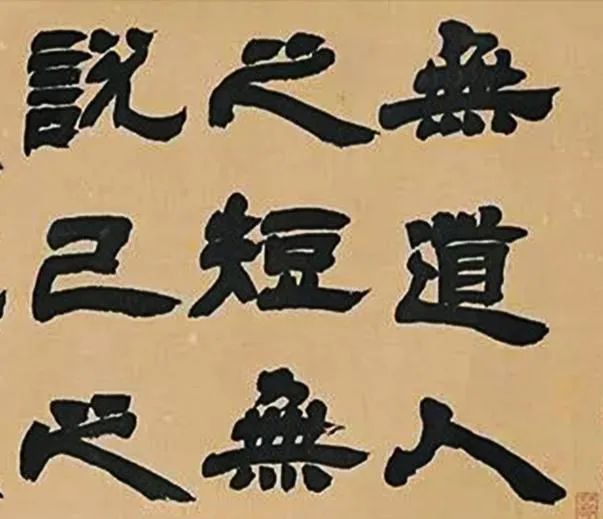 無道人
之短無
說己之